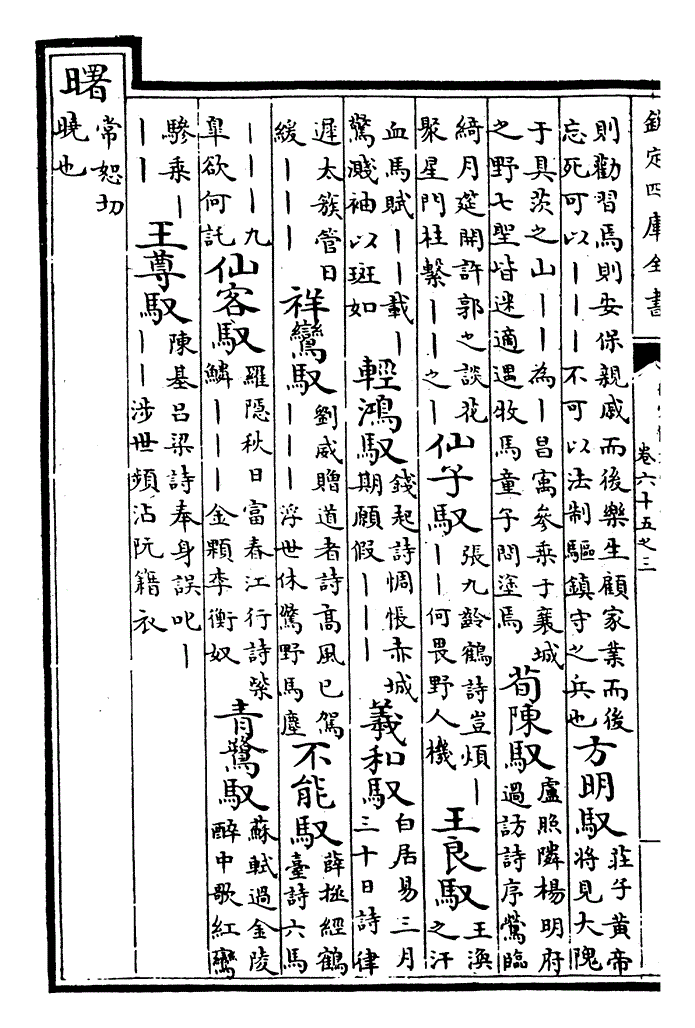 欽定四庫全書
卷六十五之三
則勸習焉則安保親戚而後樂生顧家業而後
忘死可以丨丨丨不可以法制驅鎮守之兵也
方明馭
莊子黃帝
將見大隗
于具茨之山丨丨為丨昌寓參乘于襄城
之野七聖皆迷適遇牧馬童子問塗焉
荀陳馭
盧照隣楊明府
過訪詩序鶯臨
綺月筵開許郭之談花
聚星門柱繫丨丨之丨
仙子馭
張九齡鶴詩豈煩丨
丨丨何畏野人機
王良馭
王渙
之汗
血馬賦丨丨載丨
驚濺袖以斑如
輕鴻馭
錢起詩惆悵赤城
期願假丨丨丨
羲和馭
白居易三月
三十日詩律
遲太簇管日
緩丨丨丨
祥鸞馭
劉威贈道者詩高風已駕
丨丨丨浮世休驚野馬塵
不能馭
薛極經鶴
臺詩六馬
丨丨丨九
皐欲何託
仙客馭
羅隱秋日富春江行詩紫
鱗丨丨丨金顆李衡奴
青鷺馭
蘇軾過金陵
醉中歌紅鸞
驂乘丨
丨丨
王尊馭
陳基呂梁詩奉身誤叱丨
丨丨涉世頻沾阮籍衣
曙
常恕切
曉也